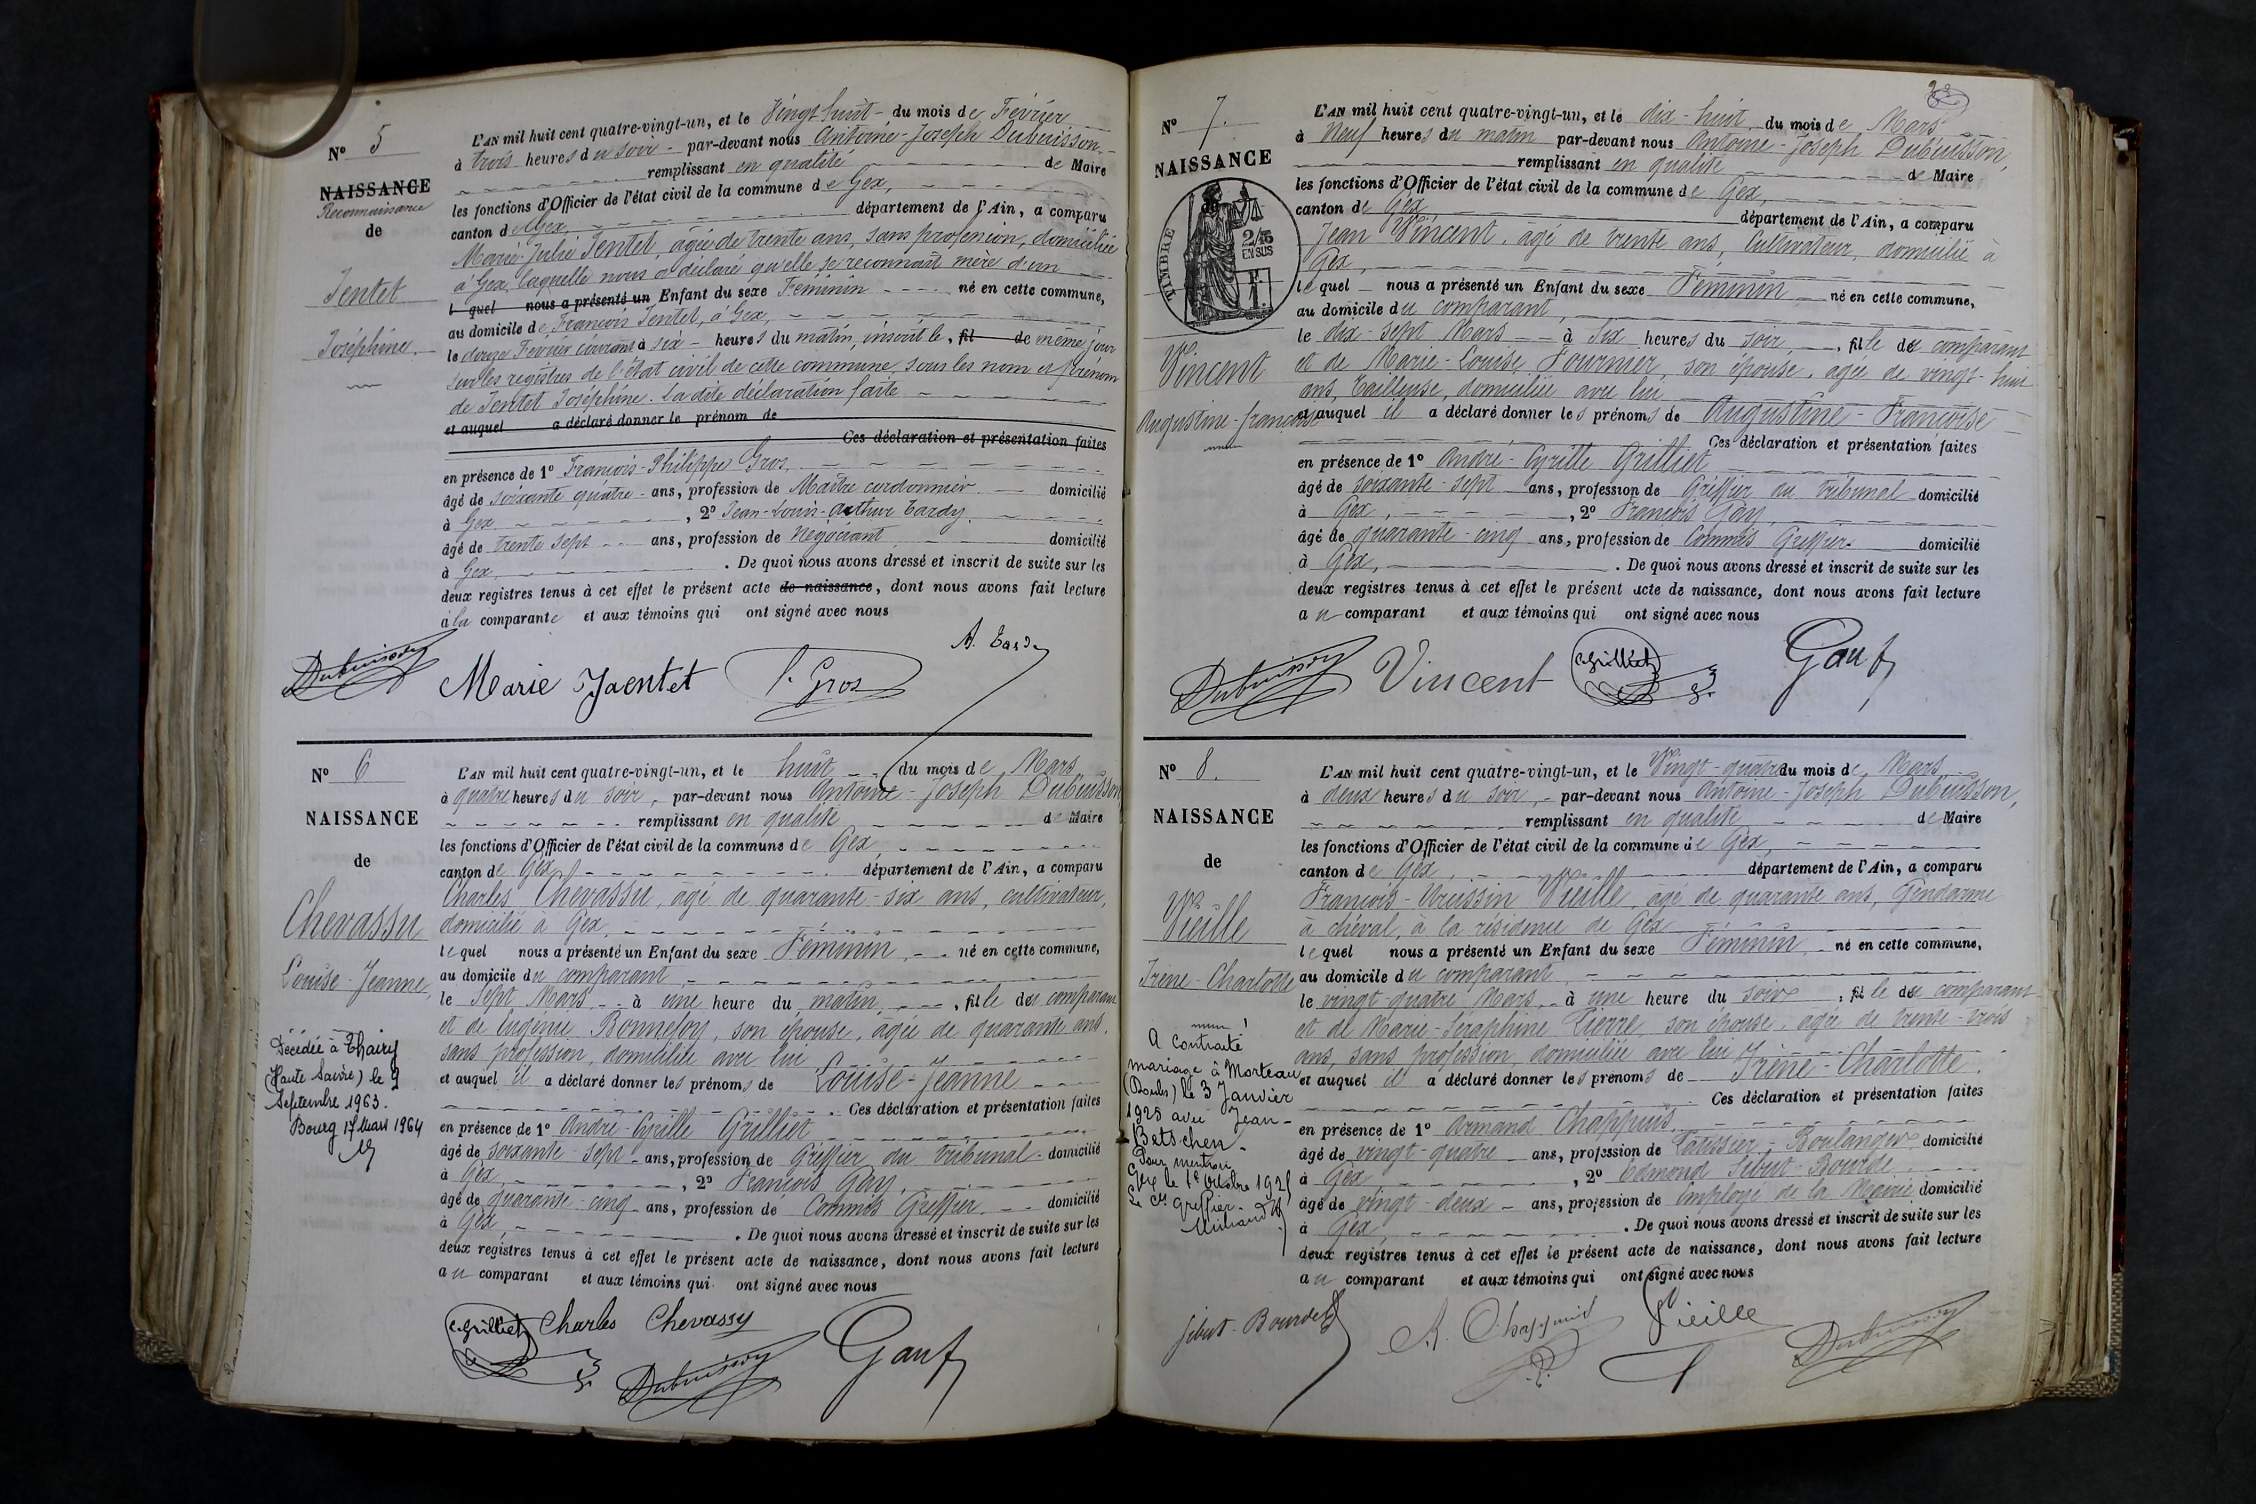 Nº 5
NAISSANCE
Reconnaissance
de
Jentet
Joséphine.
L'AN mil huit cent quatre-vingt-un, et le Vingt huit du mois de Février
à trois heures du soir par-devant nous Antoine-Joseph Dubuisson
remplissant en qualité de Maire
les fonctions d'Officier de l'état civil de la commune de Gex,
canton de Gex, département de l'Ain, a comparu
Marie-Julie Jentet, âgée de trente ans, sans profession, domiciliée
à Gex, laquelle nous a déclaré qu'elle se reconnaît mère d'un
l quel nous a présenté un Enfant du sexe Féminin né en cette commune,
au domicile de François Jentet, à Gex,
le douze Février courant à six heures du matin, inscrit le, fil de même jour
sur les registres de l'état civil de cette commune, sous les nom et prénom
de Jentet Joséphine. La dite déclaration faite
et auquel a déclaré donner le prénom de
Ces déclaration et présentation faites
en présence de 1º François-Philippe Gros,
âgé de soixante quatre ans, profession de Maître cordonnier domicilié
à Gex, 2º Jean-Louis-Arthur Tardy,
âgé de trente sept ans, profession de Négociant domicilié
à Gex. De quoi nous avons dressé et inscrit de suite sur les
deux registres tenus à cet effet le présent acte de naissance, dont nous avons fait lecture
à la comparante et aux témoins qui ont signé avec nous
A. Tardy
Dubuisson Marie Jaentet Gros
Nº 6
NAISSANCE
de
Chevassu
Louise-Jeanne,
Décédée à Thairy
(Haute Savoie) le 9
Septembre 1963.
Bourg 17 Mars 1964
L'AN mil huit cent quatre-vingt-un, et le huit du mois de Mars
à quatre heures du soir, par-devant nous Antoine-Joseph Dubuisson
remplissant en qualité de Maire
les fonctions d'Officier de l'état civil de la commune de Gex,
canton de Gex, département de l'Ain, a comparu
Charles Chevassu, agé de quarante-six ans, cultivateur,
domicilié à Gex,
lequel nous a présenté un Enfant du sexe Féminin, né en cette commune,
au domicile du comparant,
le Sept Mars à une heure du matin, fille du comparant
et de Eugénie Bonnefoy, son épouse, agée de quarante ans,
sans profession, domiciliée avec lui
et auquel il a déclaré donner les prénoms de Louise-Jeanne
Ces déclaration et présentation faites
en présence de 1º André-Cyrille Grilliet
âgé de soixante-sept ans, profession de Greffier du tribunal domicilié
à Gex, 2º François Gay,
âgé de quarante-cinq ans, profession de Commis Greffier domicilié
à Gex. De quoi nous avons dressé et inscrit de suite sur les
deux registres tenus à cet effet le présent acte de naissance, dont nous avons fait lecture
au comparant et aux témoins qui ont signé avec nous
C. Grilliet Charles Chevassu
Dubuisson Gay f
Nº 7.
NAISSANCE
de
TIMBRE
2/10
EN SUS
Vincent
Augustine-françoise
L'AN mil huit cent quatre-vingt-un, et le dix-huit du mois de Mars
à Neuf heures du matin par-devant nous Antoine-Joseph Dubuisson,
remplissant en qualité de Maire
les fonctions d'Officier de l'état civil de la commune de Gex,
canton de Gex département de l'Ain, a comparu
Jean Vincent, agé de trente ans, Cultivateur, domicilié à
Gex,
lequel nous a présenté un Enfant du sexe Féminin né en cette commune,
au domicile du comparant,
le dix-sept Mars à Six heures du soir, fille du comparant
et de Marie-Louise Fournier, son épouse, agée de vingt-huit
ans, Tailleuse, domiciliée avec lui,
et auquel il a déclaré donner les prénoms de Augustine-Françoise
Ces déclaration et présentation faites
en présence de 1º André-Cyrille Grilliet
âgé de soixante-sept ans, profession de Greffier au tribunal domicilié
à Gex, 2º François Gay,
âgé de quarante-cinq ans, profession de Commis Greffier domicilié
à Gex, . De quoi nous avons dressé et inscrit de suite sur les
deux registres tenus à cet effet le présent acte de naissance, dont nous avons fait lecture
au comparant et aux témoins qui ont signé avec nous
Dubuisson Vincent C. Grilliet Gay f
Nº 8.
NAISSANCE
de
Vieille
Irène-Charlotte
A contracté
mariage à Morteau
(Doubs) le 3 Janvier
1925 avec Jean-
Betschen.
Pour mention
Gex le 1er Octobre 192
Le Cis Greffier.
L'AN mil huit cent quatre-vingt-un, et le Vingt-quatre du mois de Mars
à deux heures du soir, par-devant nous Antoine-Joseph Dubuisson,
remplissant en qualité de Maire
les fonctions d'Officier de l'état civil de la commune de Gex,
canton de Gex, département de l'Ain, a comparu
François-Ursin Vieille, agé de quarante ans, Gendarme
à chéval, à la résidence de Gex
lequel nous a présenté un Enfant du sexe Féminin, né en cette commune,
au domicile du comparant,
le vingt-quatre Mars, à une heure du soir, fille du comparant
et de Marie-Séraphine Pierre, son épouse, agée de trente-trois
ans, sans profession, domiciliée avec lui
et auquel il a déclaré donner les prénoms de Irène-Charlotte.
Ces déclaration et présentation faites
en présence de 1º Armand Chappuis,
âgé de vingt-quatre ans, profession de Patissier-Boulanger domicilié
à Gex, 2º Edmond Sibut-Bourde
âgé de vingt-deux ans, profession de employé de la Mairie domicilié
à Gex, . De quoi nous avons dressé et inscrit de suite sur les
deux registres tenus à cet effet le présent acte de naissance, dont nous avons fait lecture
au comparant et aux témoins qui ont signé avec nous
Sibut-Bourde A. Chappuis Vieille Dubuisson